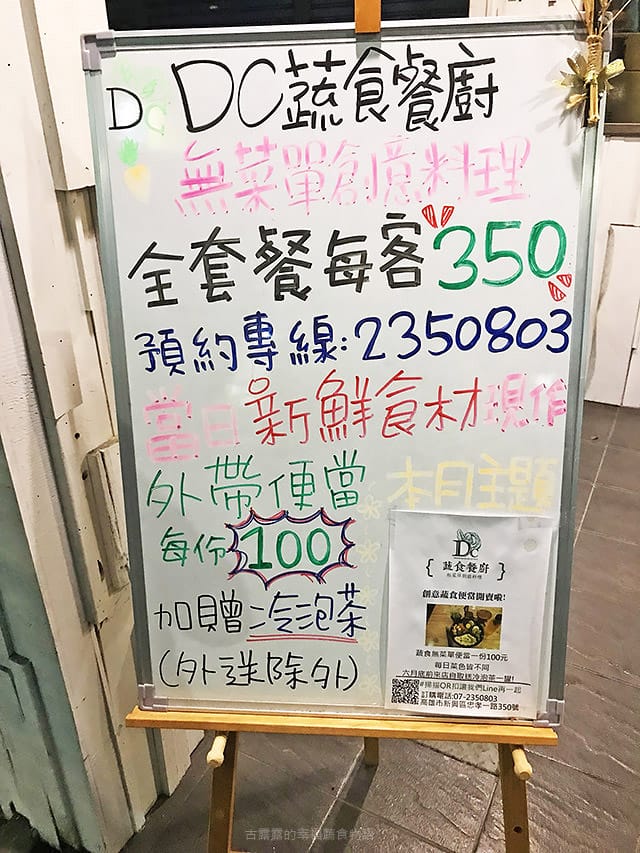 DC DC蔬食餐廚
無菜單創意料理
全套餐每客350
預約專線:2350803
當日新鮮食材現作
外帶便當
每份100
加贈冷泡茶
(外送除外)
本月主題
DC
蔬食餐廚
無菜單創意料理
創意蔬食便當開賣啦!
蔬食無菜單便當一份100元
每日菜色皆不同
六月底前來店自取送冷泡茶一罐!
#掃描QR扣讓我們Line再一起
訂購電話:07-2350803
高雄市新興區忠孝一路350號
古露露的幸福蔬食物語